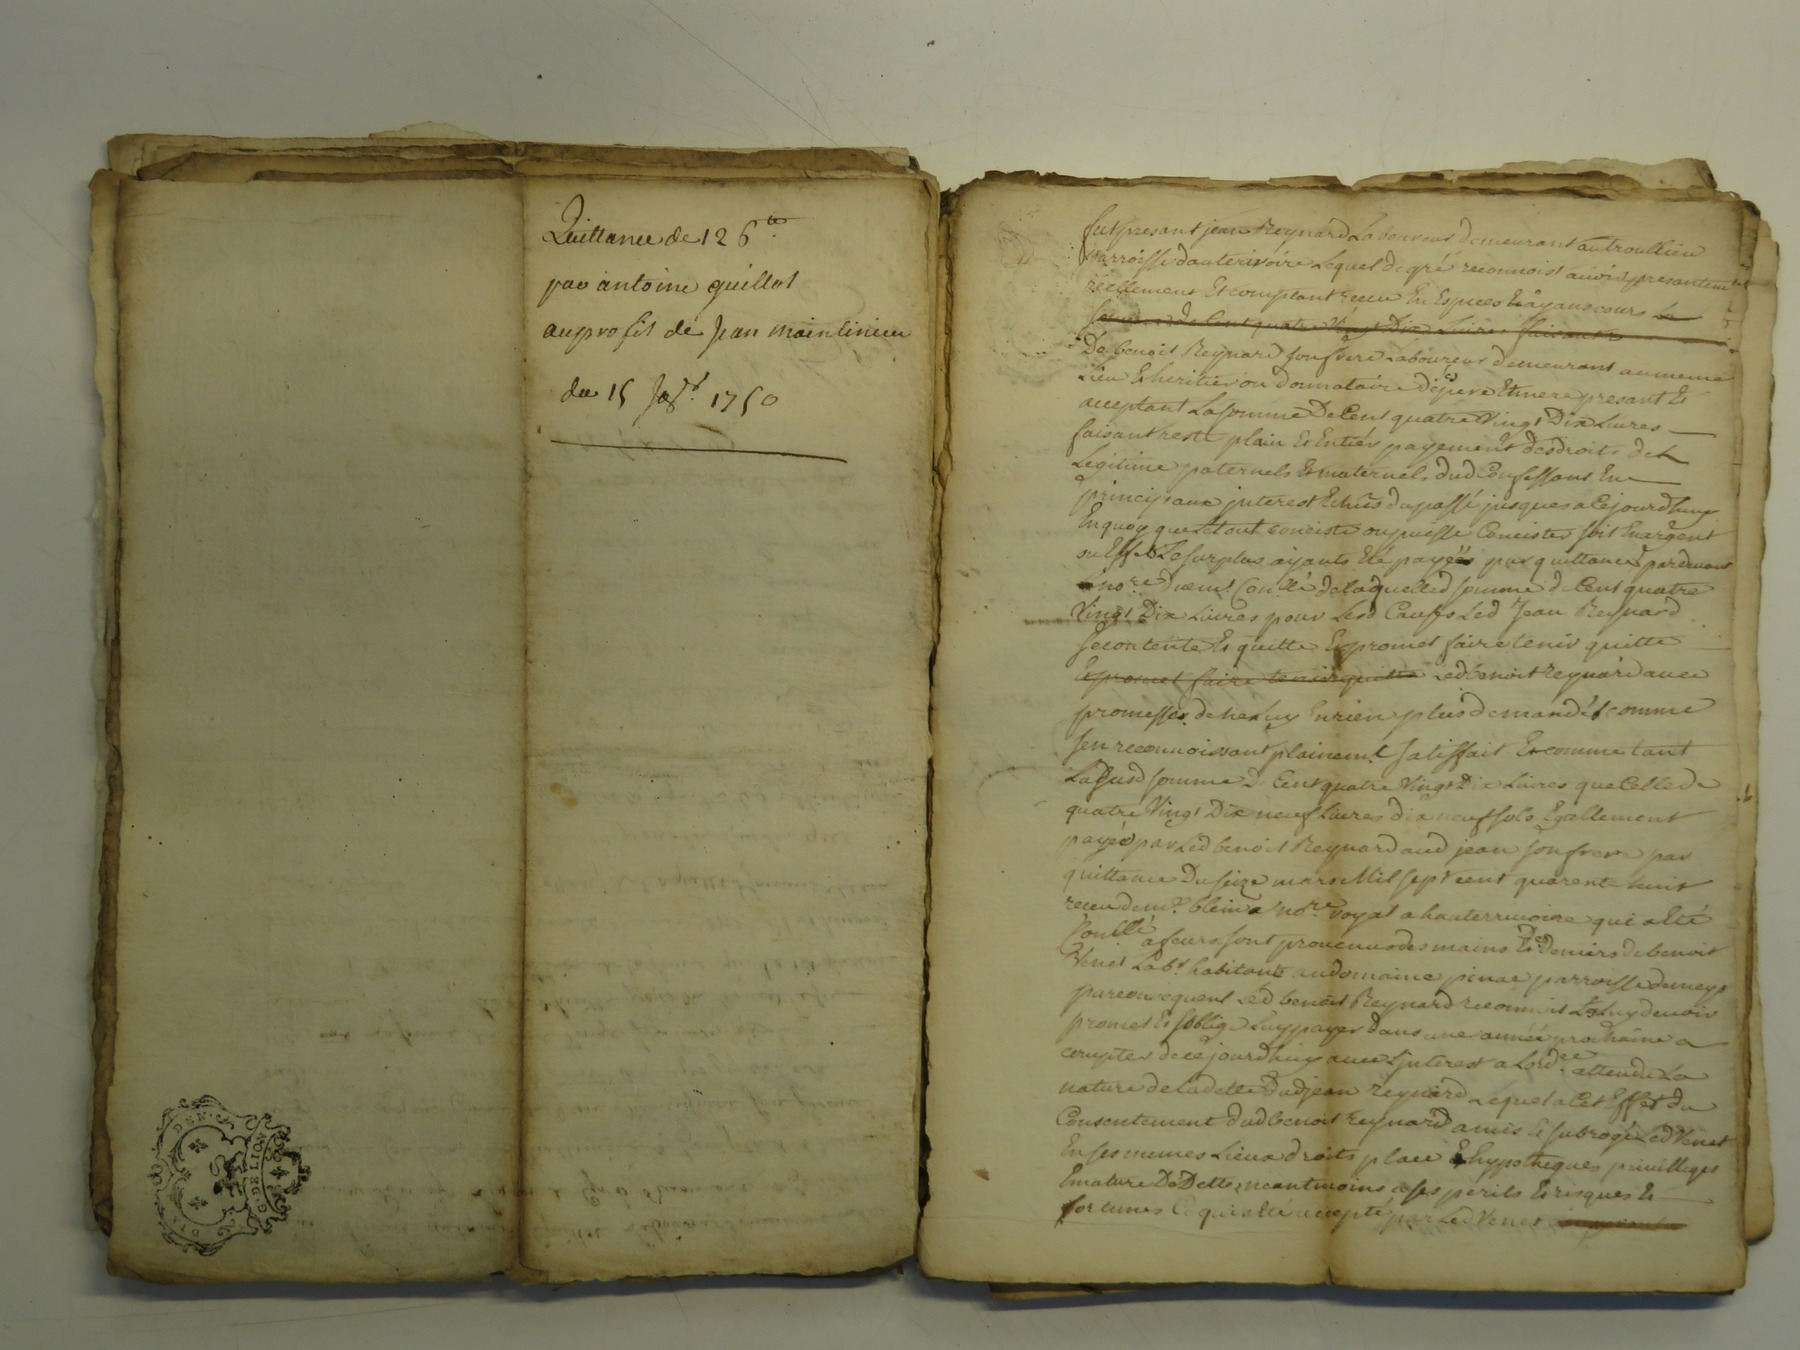 Quittance de 126 ᵗᵗ
par antoine guillot
au profit de Jean mointinieu
du 15 1750
fut presant jean Reynard Laboureur demeurant au troullieu
parroisse dauterivoire Lequel de gré reconnoist auoir presantement
reellement Et comptant receu En Espices Eÿ ayans cours La
somme de Cent quatre Vingt Dix Livres faisant
De benoit Reynard son frere Laboureur demeurant au meme
Lieu Et heritier ou donnataire de ses pere Et mere presant Et
acceptant La somme De Cent quatre Vingt Dix Livres
faisant reste plain Et Entier payement des droits de
Legitime paternels Et maternels dud Confessant En
principaux interest Echûs du passé jusques a Cejourdhuy
En quoy que Le tout conciste ou puisse Concister soit En argent
ou Effet Le surplus ayants Eté payeé par quittance pardevant
no.re Con.llé de laquelle d somme de Cent quatre
Vingt Dix Livres pour Lesd Causes Led Jean Reynard
se contente Et quitte Et promet faire tenir quitte
Et promet faire tenir quitte Led benoit Reynard avec
promesse de ne Luy En rien plus demander comme
sen reconnoissant plainem.t satisfait Et comme tant
La susd somme d Cent quatre Vingt Dix Livres que Celle de
quatre Vingt Dix neuf Livres dix neuf sols Egallement
payée par Led benoit Reynard aud jean son frere par
quittance Du seize mars Mil sept cent quarente huit
receu de m.e no.re royal a hauterivoire qui a Eté
Con.llé a feurs sont provenus des mains Et Deniers de benoit
Venet Lab.r habitant au domaine pinac parroisse de meys
par consequent Led benoit Reynard reconnoit Luy devoir
promet Et soblige Luy payer dans une année prochaine a
compter de cejourdhuy avec Linterest a Lord.ce attendu La
nature de La dette Dud jean reynard Lequel a Cet Effet du
Consentement dud benoit reynard a mis Et subrogé Led Venet
En ses memes Lieux droits place Et hypotheques privilleges
Et nature De Dette, neantmoins a ses perils Et risques Et
fortunes Ce qui a Eté accepté par Led Venet
G. DE LION